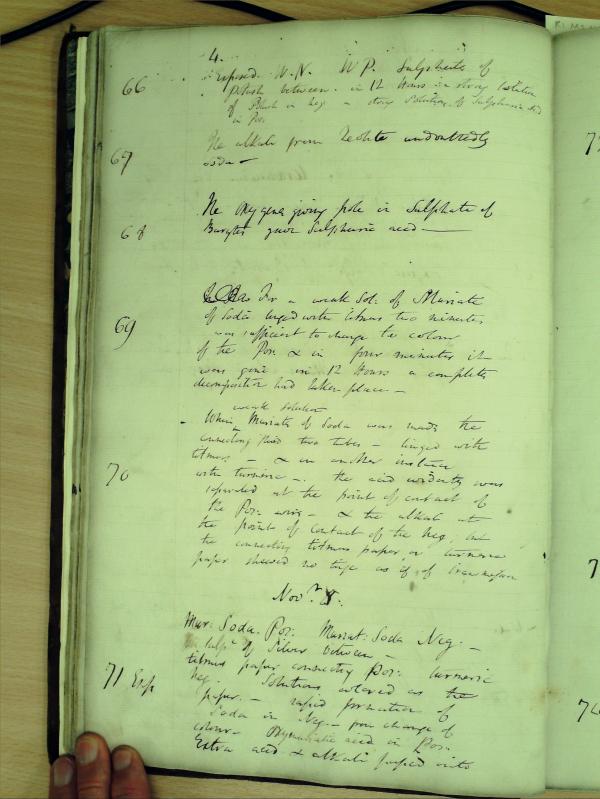 4.
66 Exposed W.N. W P. Sulphate of
Potash between. in 12 Hours in strong Solution
of Potash in Neg a strong Solution of Sulphuric Acid
in Pos
67 The alkali from Zeolite undoubtedly
soda -
68 The Oxygene giving pole in Sulphate of
Barytes gave Sulphuric acid —
69 For a weak Sol: of Muriate
of Soda tinged with litmus two minutes
was sufficient to change the colour
of the Pos. & in four minutes it
was gone in 12 Hours a complete
decomposition had taken place -
weak solution
70 When Muriate of Soda was made the
connecting fluid two tubes - tinged with
litmus - & in another instance
with turmeric -. the acid evidently was
separated at the point of contact of
the Pos. wire - & the alkali at
the point of Contact of the Neg; but
the connecting litmus paper, or turmeric
paper shewed no tinge as if of
Novr. 8:
Mur: Soda. Pos: Muriat: Soda Neg. -
Sulpt. of Silver between -
71 Exp litmus paper connecting Pos: turmeric
Neg. Solutions colored as the
paper. - rapid formation of
Soda in Neg - from change of
colour - Oxymuriatic acid in Pos.
Extra acid & alkali passed into